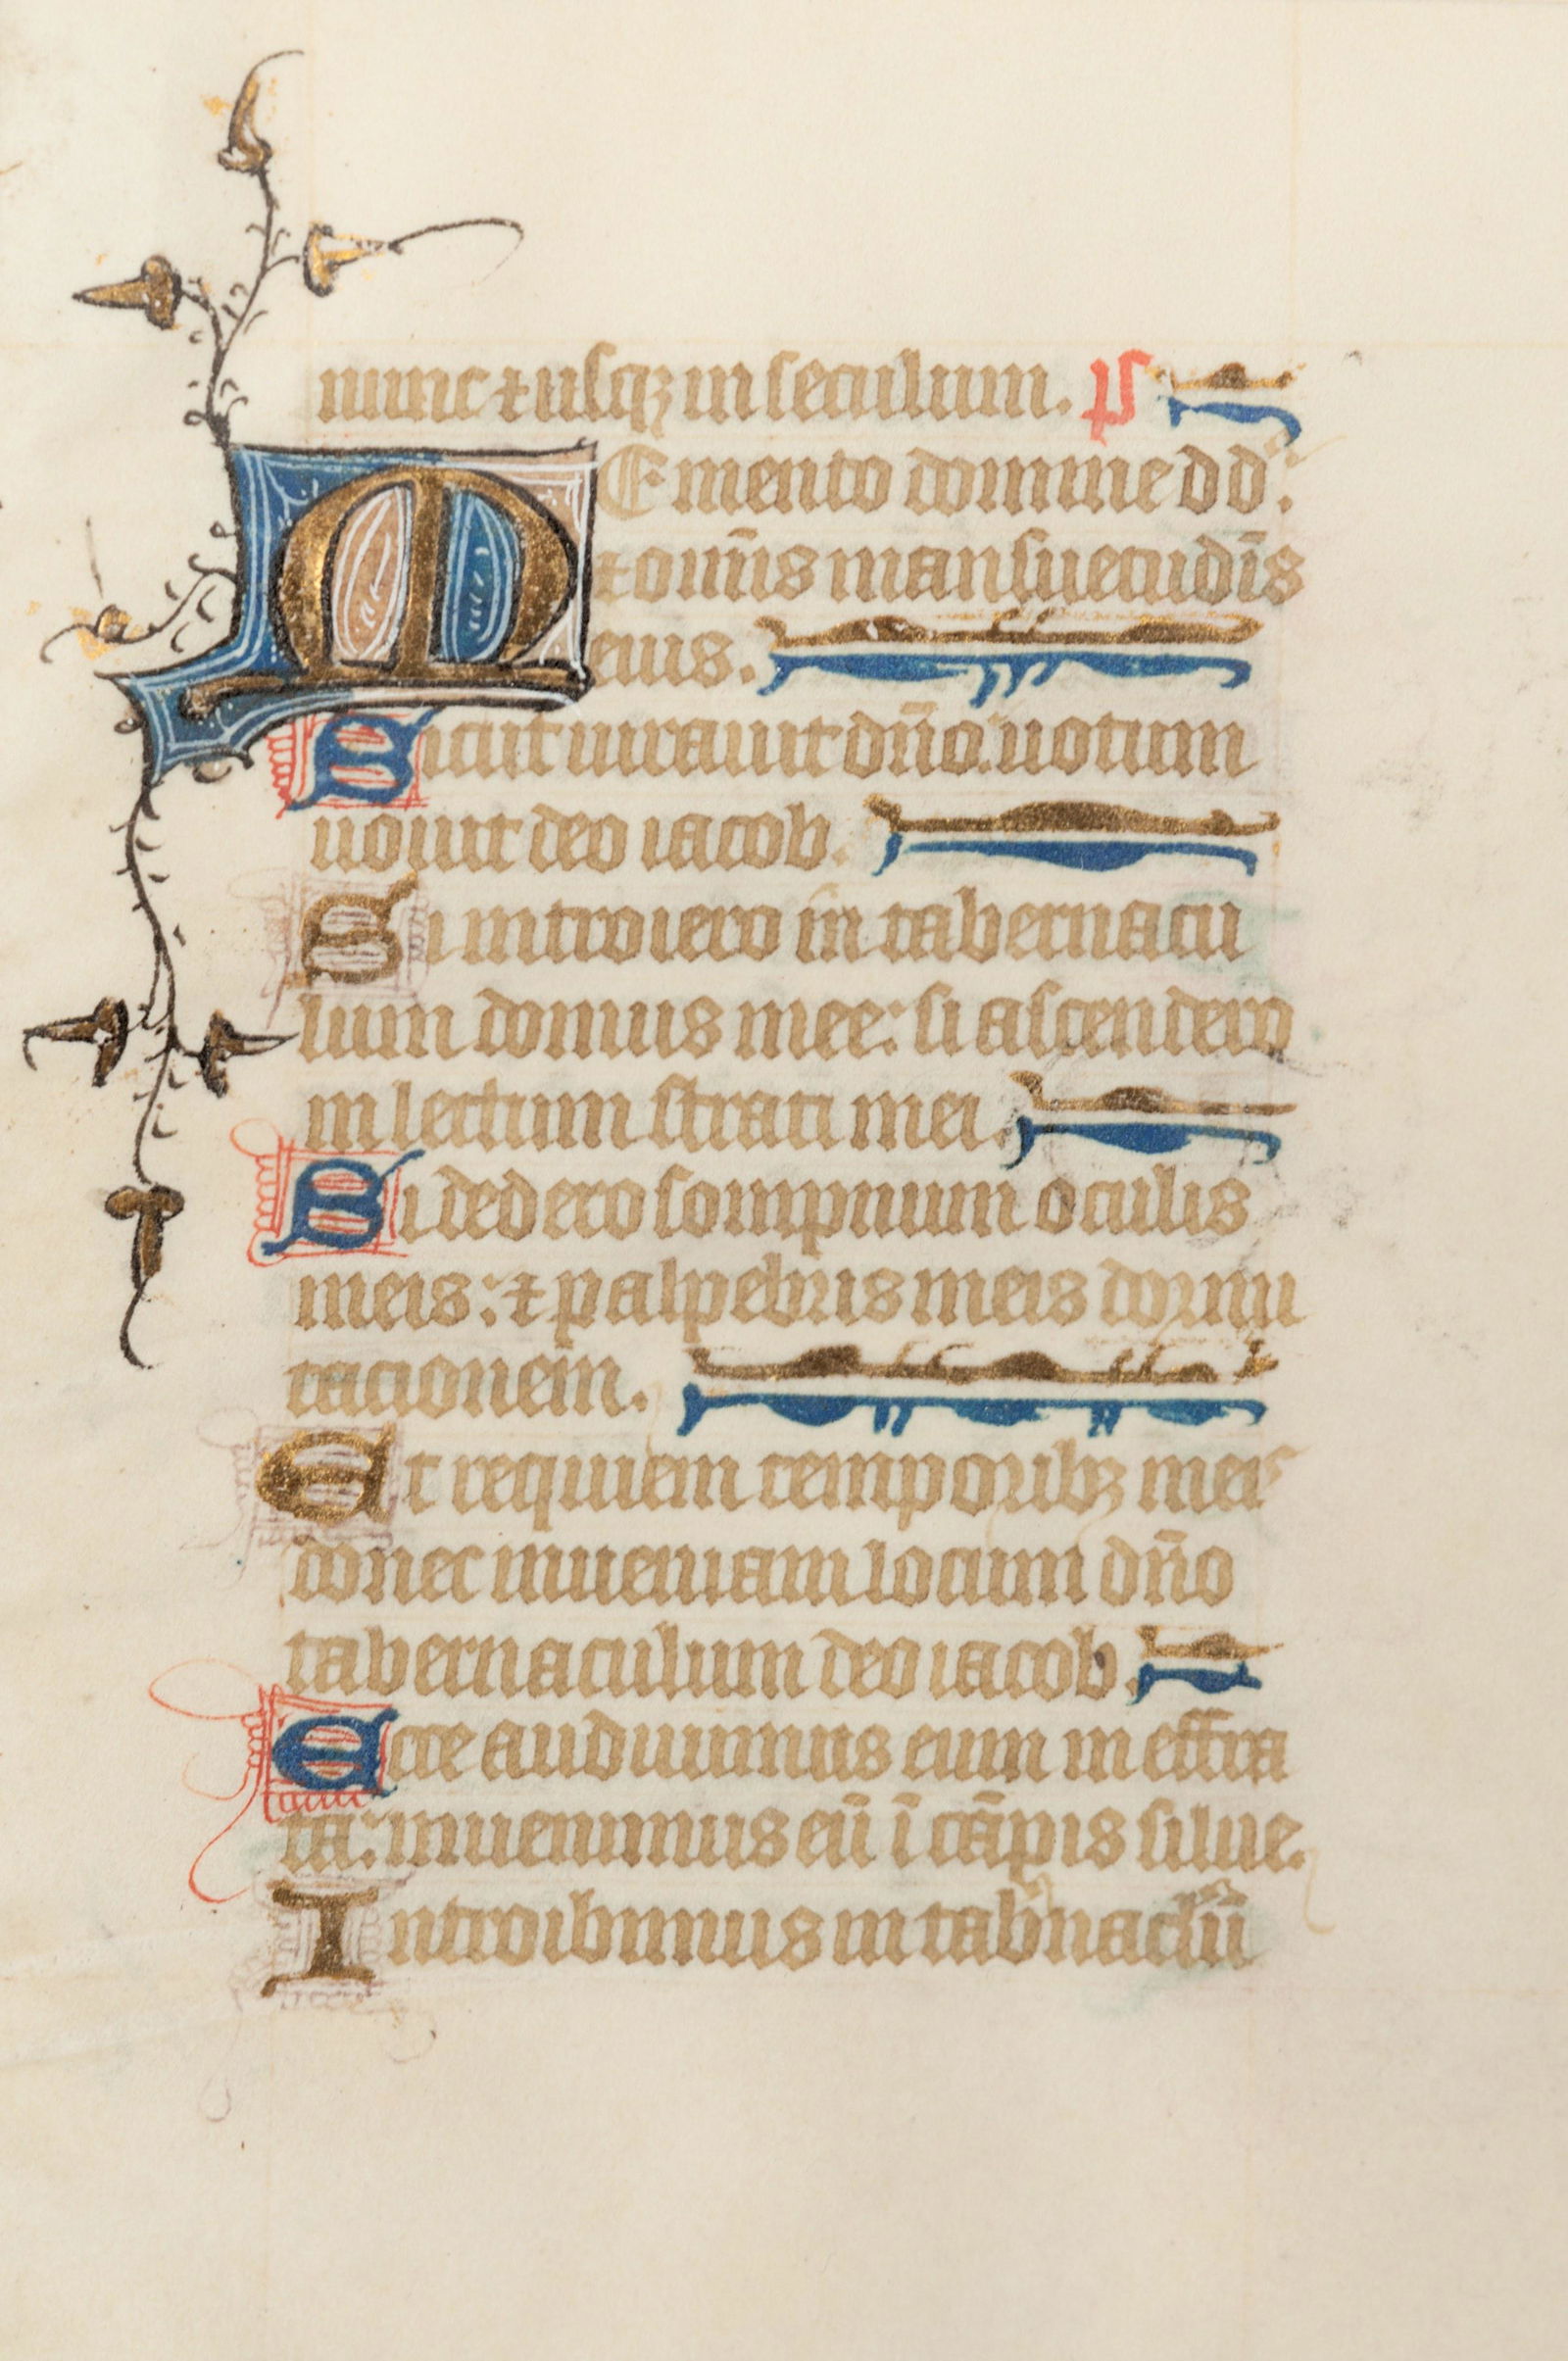 nunc ⁊ usqꝫ in seculum. ps
MEmento domine dd:
⁊ om̄is mansuetudīs
eius.
Sicut iurauit dn̄o: uotum
uouit deo iacob.
Si introiero in tabernacu
lum domus mee: si ascendero
in lectum strati mei.
Si dedero sompnum oculis
meis: ⁊ palpebris meis dormi
tacionem.
Et requiem temporibꝫ meis
donec inueniam locum dn̄o
tabernaculum deo iacob.
Ecce audiuimus eum in effra
ta: inuenimus eū ī cāpis silue.
Introibimus in tab̄naclū